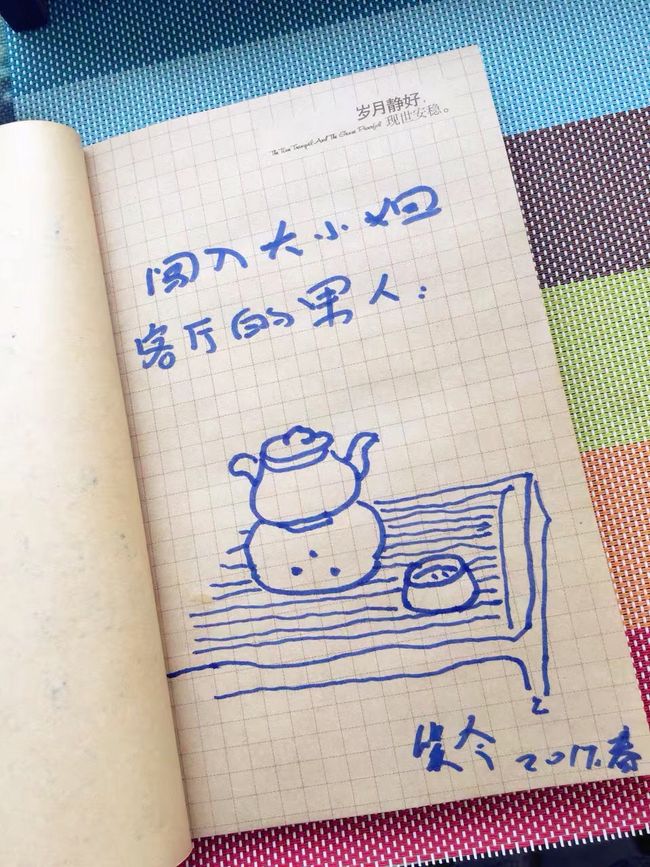 岁月静好，
现世安稳。
The Time Tranquil And The Cheese Peaceful
闯入大小姐
客厅的男人：
2017.春